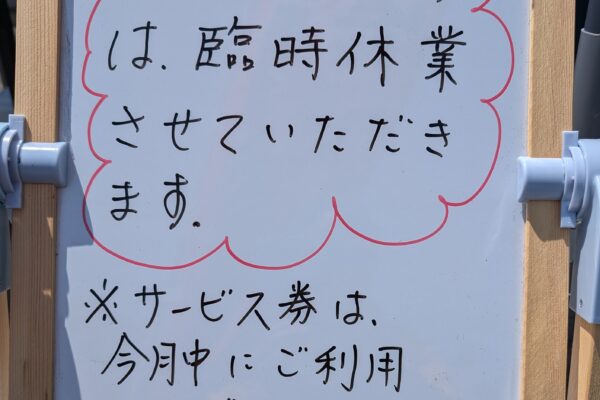 は、臨時休業
させていただき
ます。
※サービス券は、
今月中にご利用